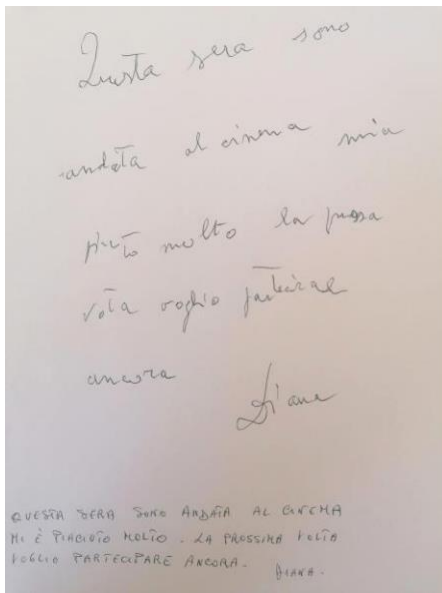 Questa sera sono
andata al cinema mia
piuto molto la prossa
vota voglio
ancora
Diana
QUESTA SERA SONO ANDATA AL CINEMA
MI È PIACIUTO MOLTO. LA PROSSIMA VOLTA
VOGLIO PARTECIPARE ANCORA.
DIANA.